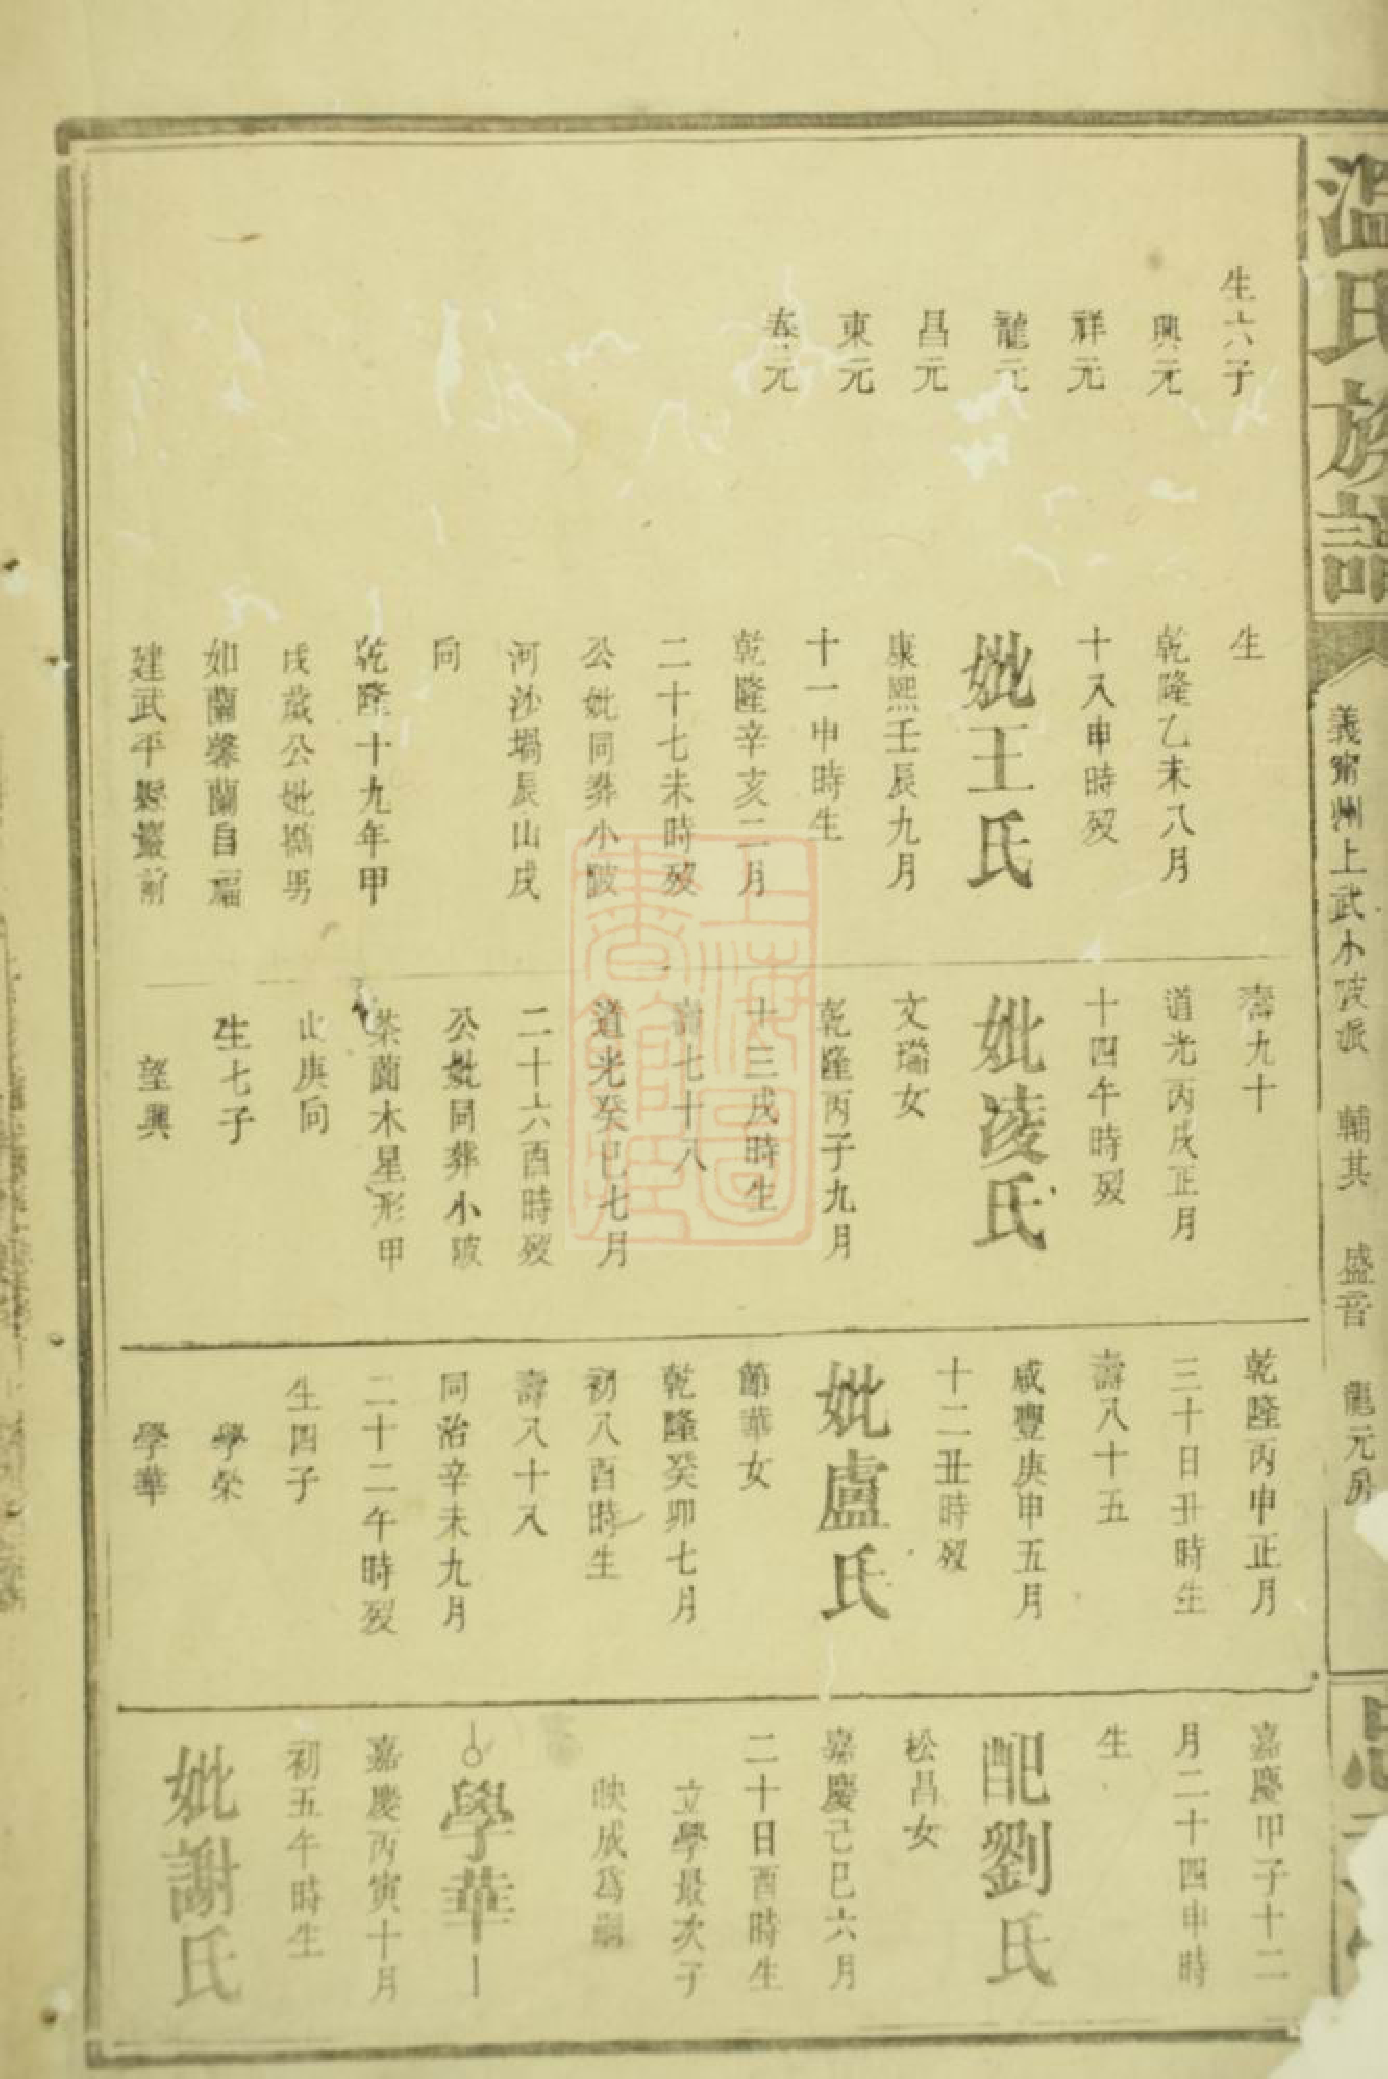 溫氏族譜
義甯州上武小陂派 輔其 盛音 龍元房
生六子
興元
祥元
龍元
昌元
東元
泰元
生
乾隆乙未八月
十八申時歿
妣王氏
康熙壬辰九月
十一申時生
乾隆辛亥二月
二十七未時歿
公妣同葬小陂
河沙塅辰山戌
向
乾隆十九年甲
戌歲公妣攜男
如蘭馨蘭自福
建武平縣巖前
壽九十
道光丙戌正月
十四午時歿
妣凌氏
文瑞女
乾隆丙子九月
十三戌時生
壽七十八
道光癸巳七月
二十六酉時歿
公妣同葬小陂
茶蘭木星形甲
山庚向
生七子
望興
乾隆丙申正月
三十日丑時生
壽八十五
咸豐庚申五月
十二丑時歿
妣盧氏
節華女
乾隆癸卯七月
初八酉時生
壽八十八
同治辛未九月
二十二午時歿
生四子
學榮
學華
嘉慶甲子十二
月二十四申時
生
配劉氏
松昌女
嘉慶己巳六月
二十日酉時生
立學最次子
映成為嗣
學華
嘉慶丙寅十月
初五午時生
妣謝氏
上海圖書館藏